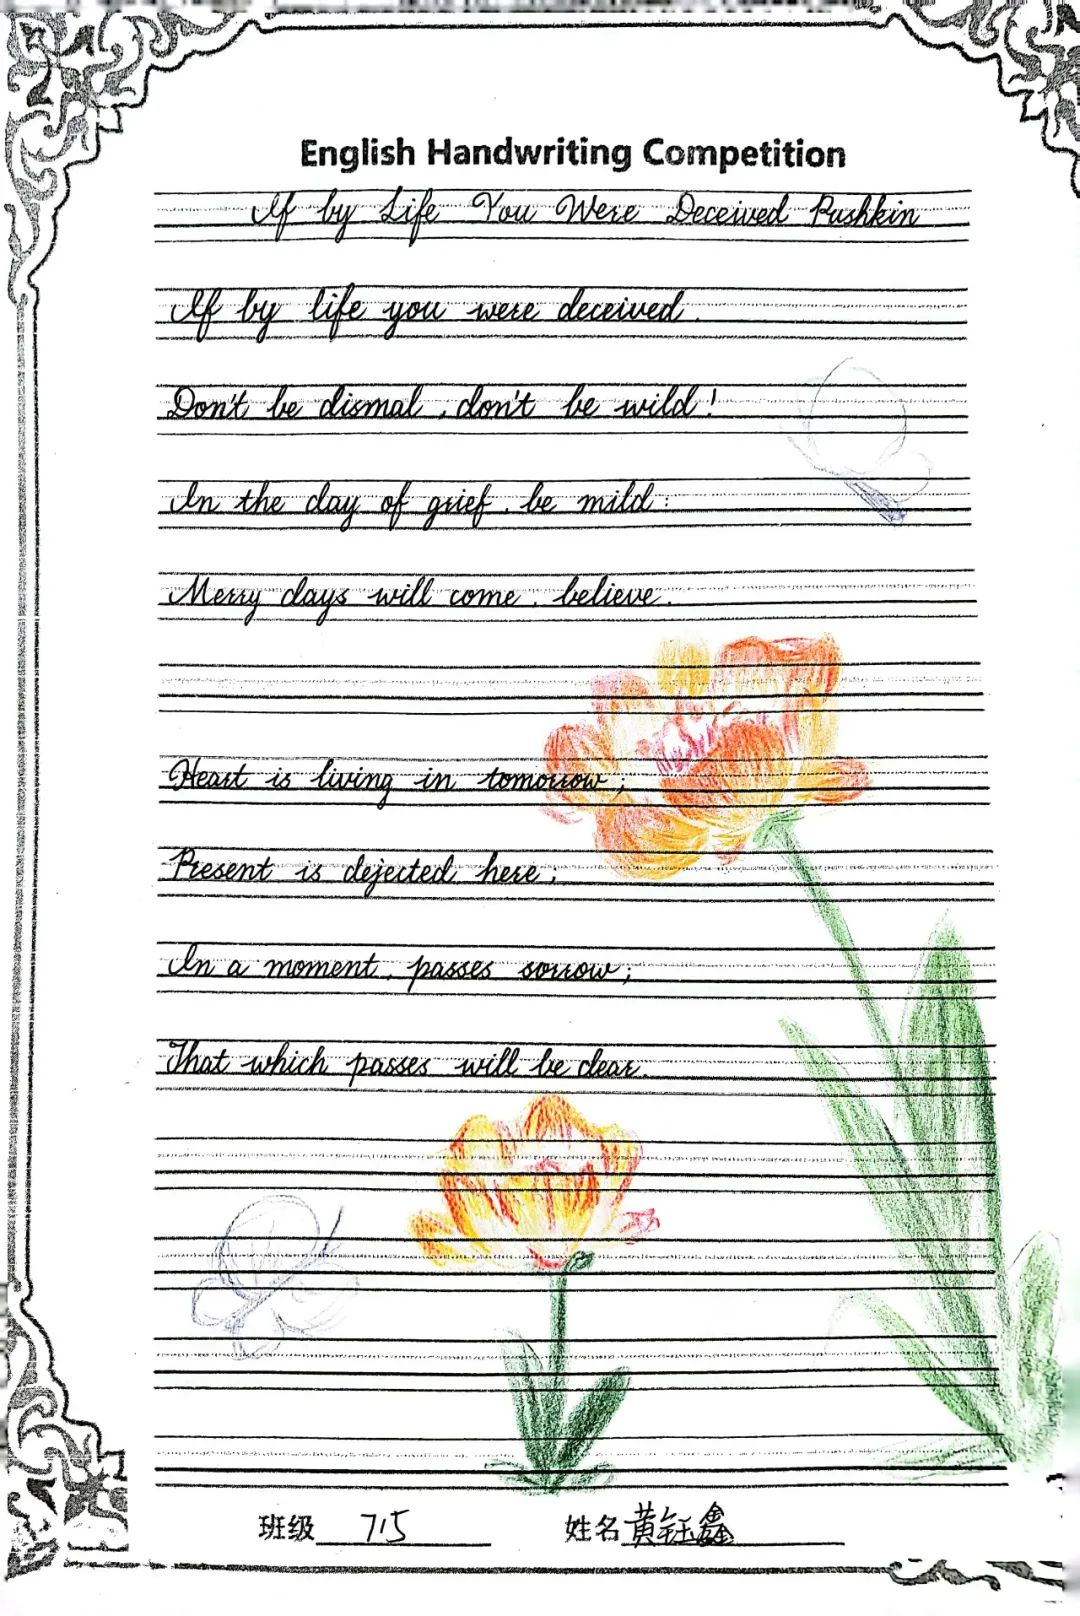 English Handwriting Competition
If by Life You Were Deceived Pushkin
If by life you were deceived.
Don't be dismal, don't be wild!
In the day of grief, be mild:
Merry days will come, believe.
Heart is living in tomorrow;
Present is dejected here;
In a moment, passes sorrow;
That which passes will be dear.
班级 715 姓名 黄钰鑫